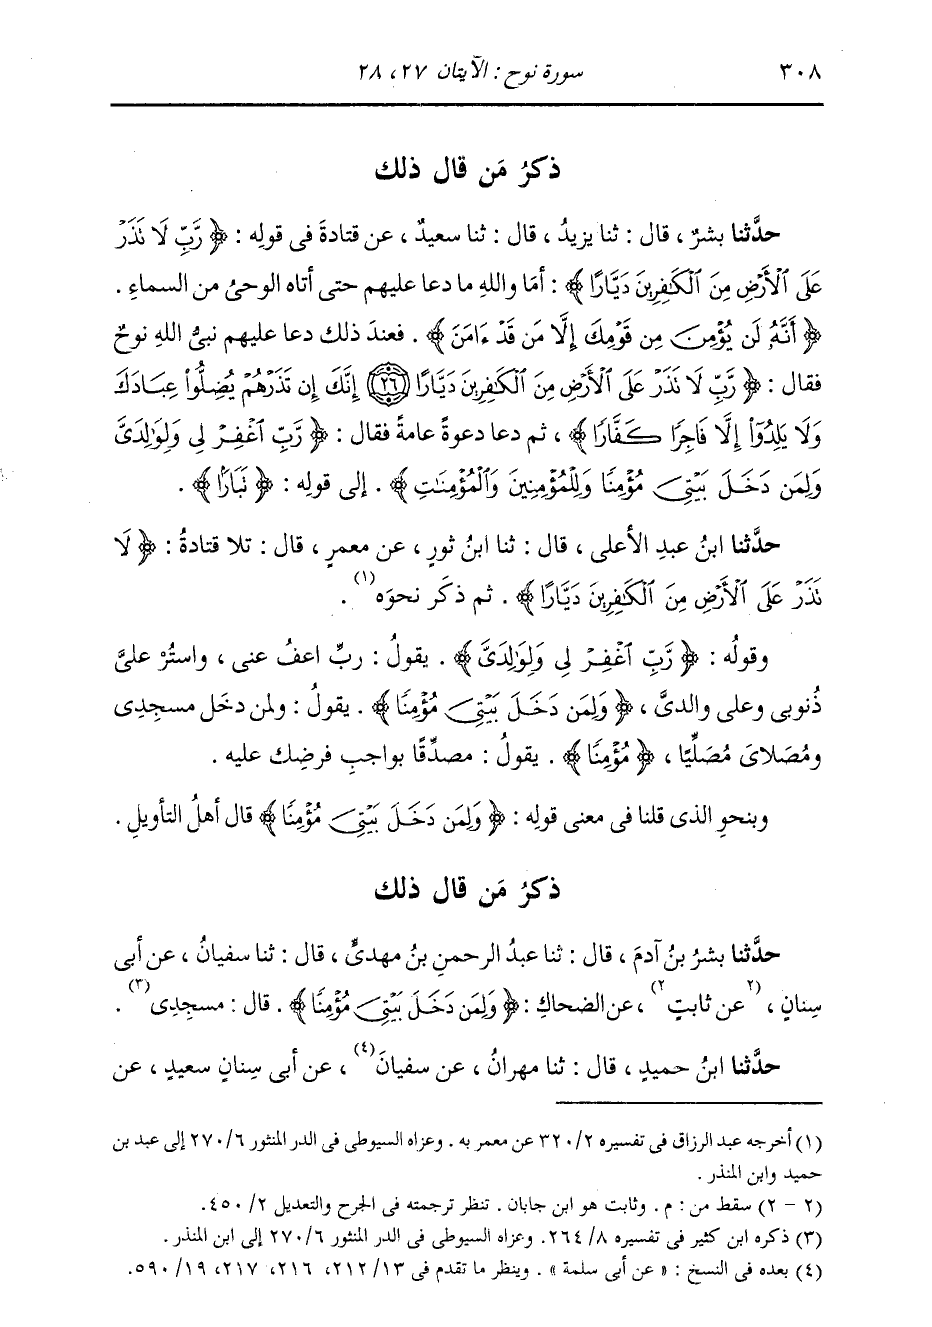 ٣٠٨ سورة نوح : الآيتان ٢٧ ، ٢٨
ذكرُ مَن قال ذلك
حدَّثنا بشرٌ ، قال : ثنا يزيدُ ، قال : ثنا سعيدٌ ، عن قتادةَ فى قولِه : ﴿ رَّبِّ لَا نَذَرْ
عَلَى ٱلْأَرْضِ مِنَ ٱلْكَٰفِرِينَ دَيَّارًا ﴾ : أمَا واللهِ ما دعا عليهم حتى أتاه الوحىُ من السماءِ .
﴿ أَنَّهُۥ لَن يُؤْمِنَ مِن قَوْمِكَ إِلَّا مَن قَدْ ءَامَنَ ﴾ . فعندَ ذلك دعا عليهم نبىُّ اللهِ نوحٌ
فقال : ﴿ رَّبِّ لَا نَذَرْ عَلَى ٱلْأَرْضِ مِنَ ٱلْكَٰفِرِينَ دَيَّارًا ٢٦ إِنَّكَ إِن تَذَرْهُمْ يُضِلُّوا۟ عِبَادَكَ
وَلَا يَلِدُوٓا۟ إِلَّا فَاجِرًا كَفَّارًا ﴾ ، ثم دعا دعوةً عامةً فقال : ﴿ رَّبِّ ٱغْفِرْ لِى وَلِوَٰلِدَىَّ
وَلِمَن دَخَلَ بَيْتِىَ مُؤْمِنًا وَلِلْمُؤْمِنِينَ وَٱلْمُؤْمِنَٰتِ ﴾ . إلى قولِه : ﴿ تَبَارًۢا ﴾ .
حدَّثنا ابنُ عبدِ الأعلى ، قال : ثنا ابنُ ثورٍ ، عن معمرٍ ، قال : تلا قتادةُ : ﴿ لَا
نَذَرْ عَلَى ٱلْأَرْضِ مِنَ ٱلْكَٰفِرِينَ دَيَّارًا ﴾ . ثم ذكَر نحوَه(١) .
وقولُه : ﴿ رَّبِّ ٱغْفِرْ لِى وَلِوَٰلِدَىَّ ﴾ . يقولُ : ربِّ اعفُ عنى ، واستُرْ علىَّ
ذُنوبى وعلى والدىَّ ، ﴿ وَلِمَن دَخَلَ بَيْتِىَ مُؤْمِنًا ﴾ . يقولُ : ولمن دخَل مسجدِى
ومُصَلاىَ مُصَلِّيًا ، ﴿ مُؤْمِنًا ﴾ . يقولُ : مصدِّقًا بواجبِ فرضِك عليه .
وبنحوِ الذى قلنا فى معنى قولِه : ﴿ وَلِمَن دَخَلَ بَيْتِىَ مُؤْمِنًا ﴾ قال أهلُ التأويلِ .
ذكرُ مَن قال ذلك
حدَّثنا بشرُ بنُ آدمَ ، قال : ثنا عبدُ الرحمنِ بنُ مهدىٍّ ، قال : ثنا سفيانُ ، عن أبى
سِنانٍ ، (٢عن ثابتٍ٢) ، عن الضحاكِ : ﴿ وَلِمَن دَخَلَ بَيْتِىَ مُؤْمِنًا ﴾ . قال : مسجِدِى(٣) .
حدَّثنا ابنُ حميدٍ ، قال : ثنا مهرانُ ، عن سفيانَ(٤) ، عن أبى سِنانٍ سعيدٍ ، عن
(١) أخرجه عبد الرزاق فى تفسيره ٣٢٠/٢ عن معمر به . وعزاه السيوطى فى الدر المنثور ٢٧٠/٦ إلى عبد بن
حميد وابن المنذر .
(٢ - ٢) سقط من : م . وثابت هو ابن جابان . تنظر ترجمته فى الجرح والتعديل ٤٥٠/٢ .
(٣) ذكره ابن كثير فى تفسيره ٢٦٤/٨. وعزاه السيوطى فى الدر المنثور ٢٧٠/٦ إلى ابن المنذر .
(٤) بعده فى النسخ : « عن أبى سلمة » . وينظر ما تقدم فى ٢١٢/١٣، ٢١٦، ٢١٧، ٥٩٠/١٩.